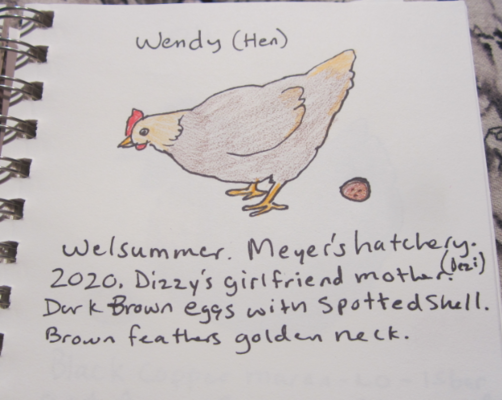 Wendy (Hen)
Welsummer. Meyer's hatchery.
2020. Dizzy's girlfriend mother. (Dezi)
Dark Brown eggs with Spotted Shell.
Brown feathers golden neck.